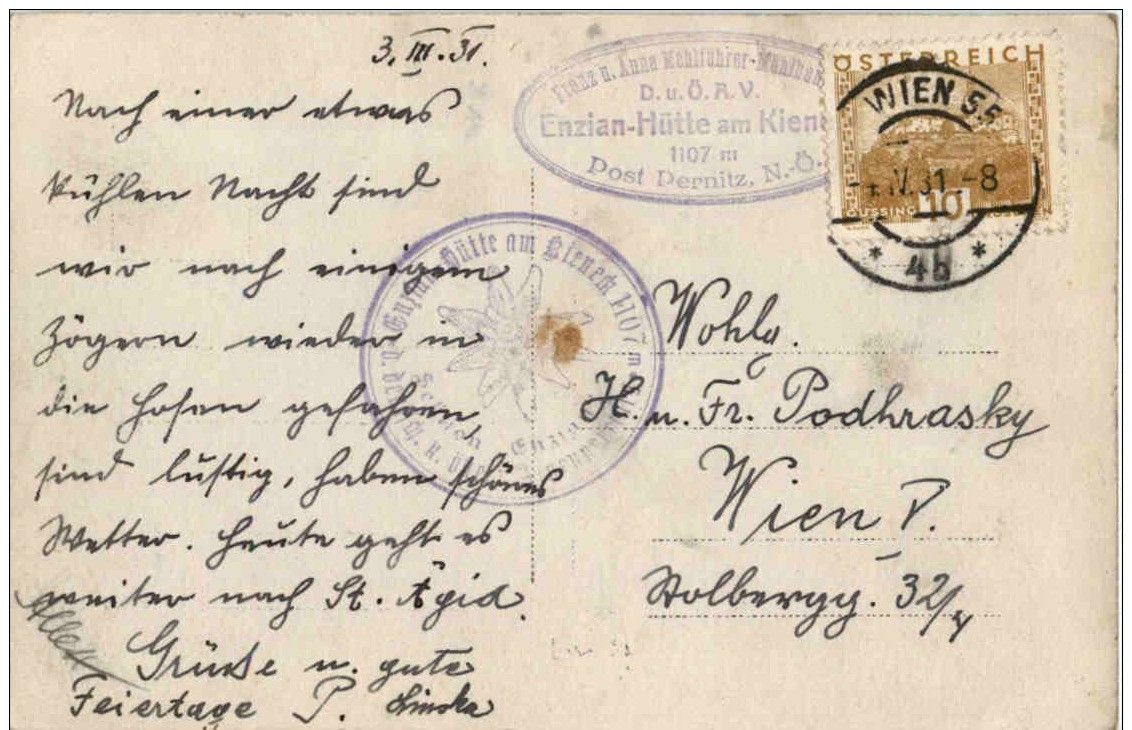 3. III. 31.
Nach einer etwas
kühlen Nacht sind
wir nach einigem
Zögern wieder in
die Hosen gefahren
sind lustig, haben schönes
Wetter. Heute geht es
weiter nach St. Ägid.
Grüße u. gute
Feiertage P.
Franz u. Anna
D. u. Ö. A. V.
Enzian-Hütte am Kien
1107 m
Post Pernitz, N.-Ö.
Enzian Hütte am Kieneck 1107 m
Enzian
ÖSTERREICH
10
WIEN 55
IV. 31 - 8
* 4b *
Wohlg.
H. u. Fr. Podhrasky
Wien V.
Stolbergg. 32/